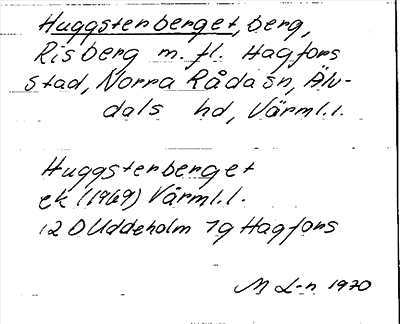 Huggstenberget, berg,
Risberg m. fl. Hagfors
stad, Norra Råda sn, Älv-
dals hd, Värml.l.
Huggstenberget
ek (1969) Värml.l.
12 D Uddeholm 7g Hagfors
M L-n 1970